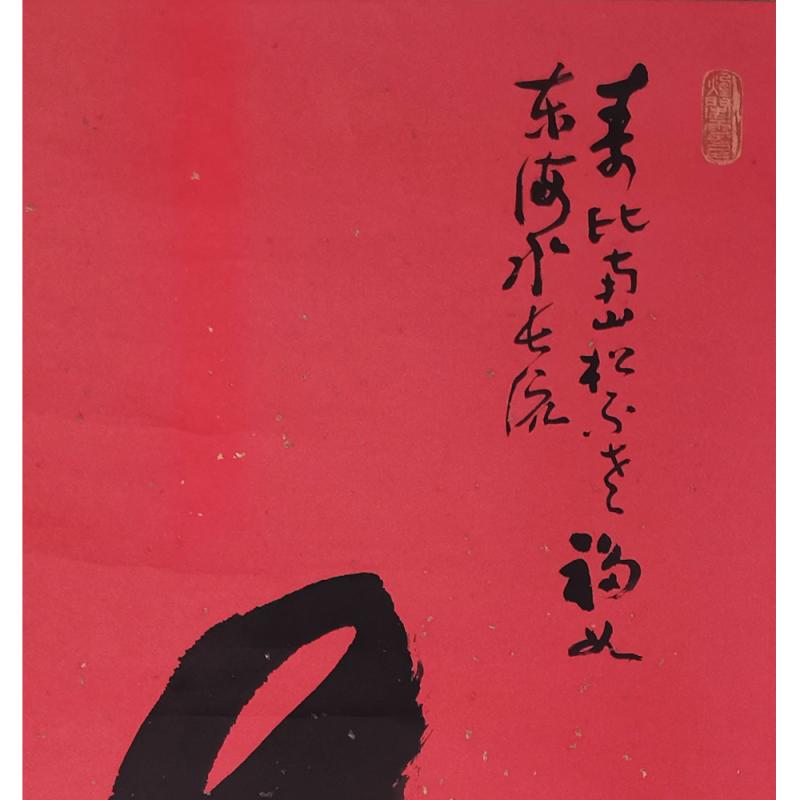 寿比南山松不老福如
东海水长流